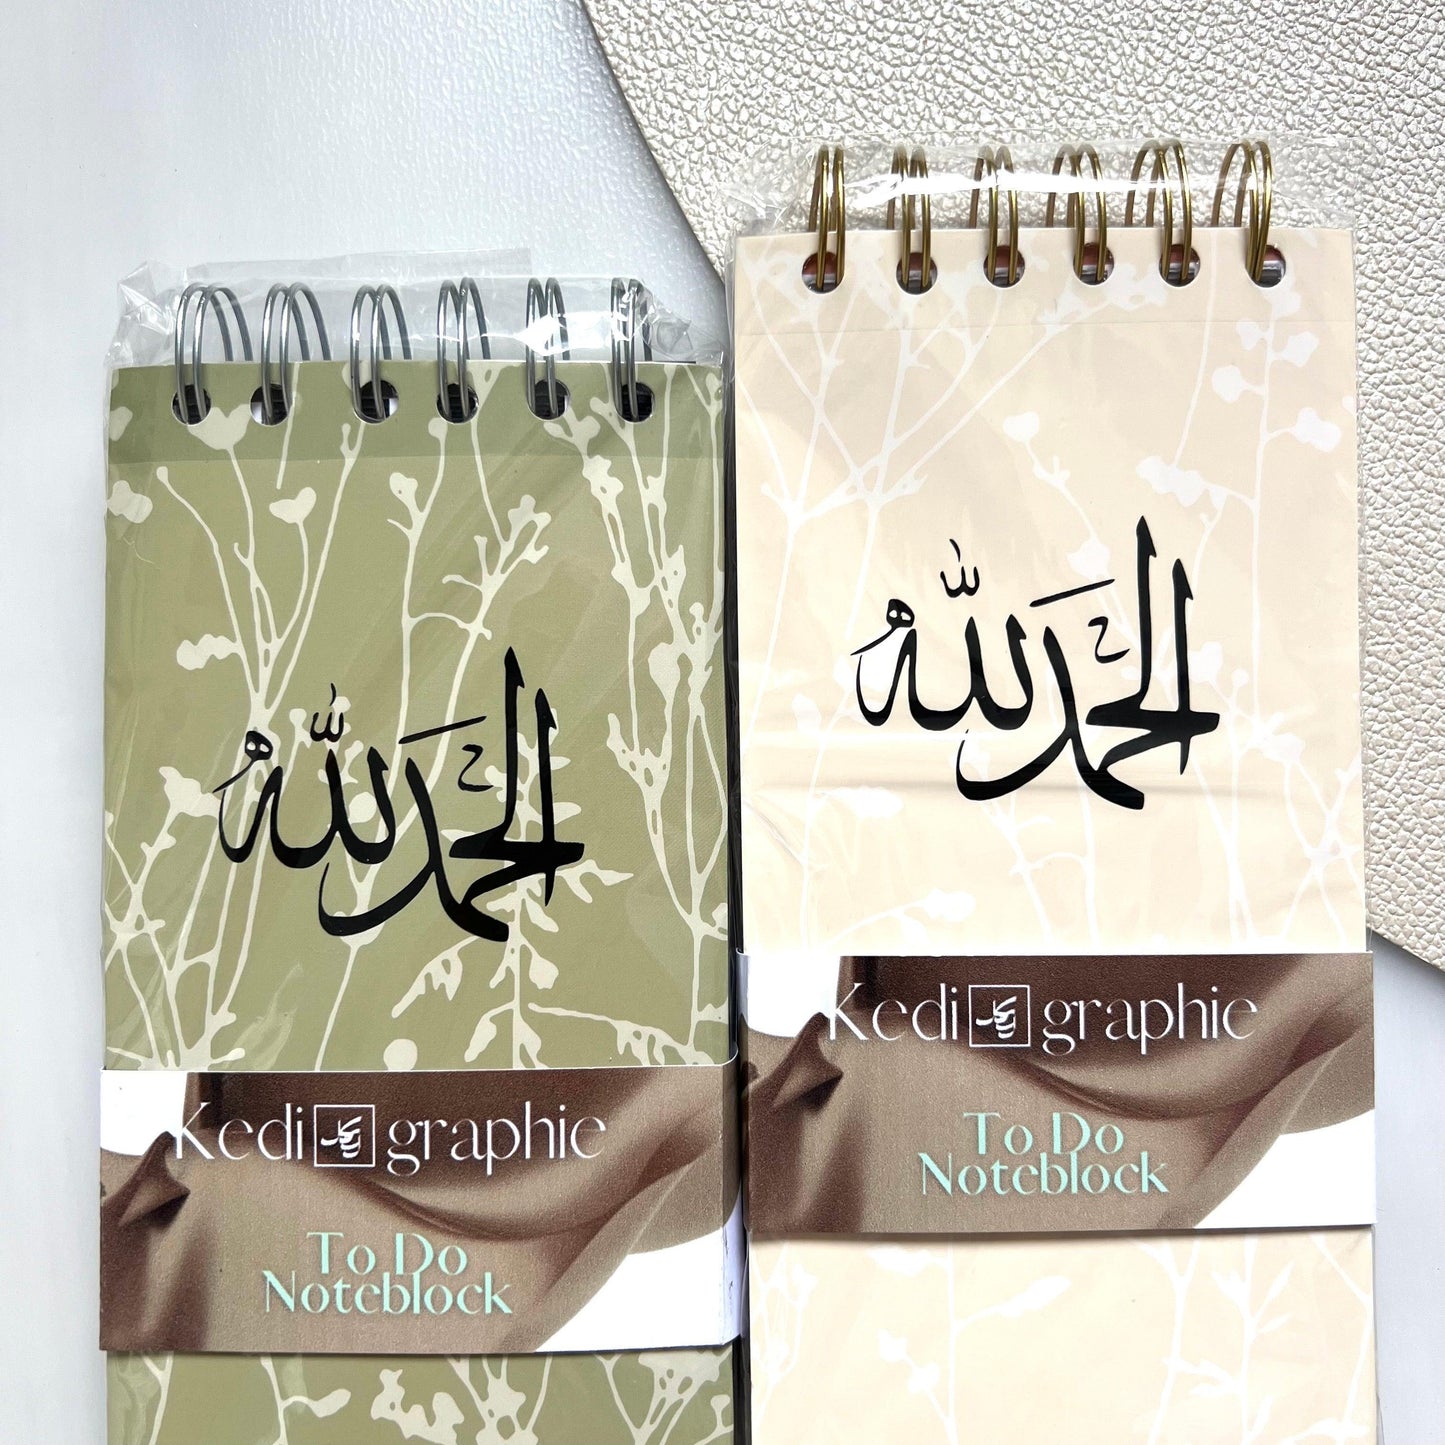 الحمد لله
Kedi graphie
To Do
Noteblock
الحمد لله
Kedi graphie
To Do
Noteblock